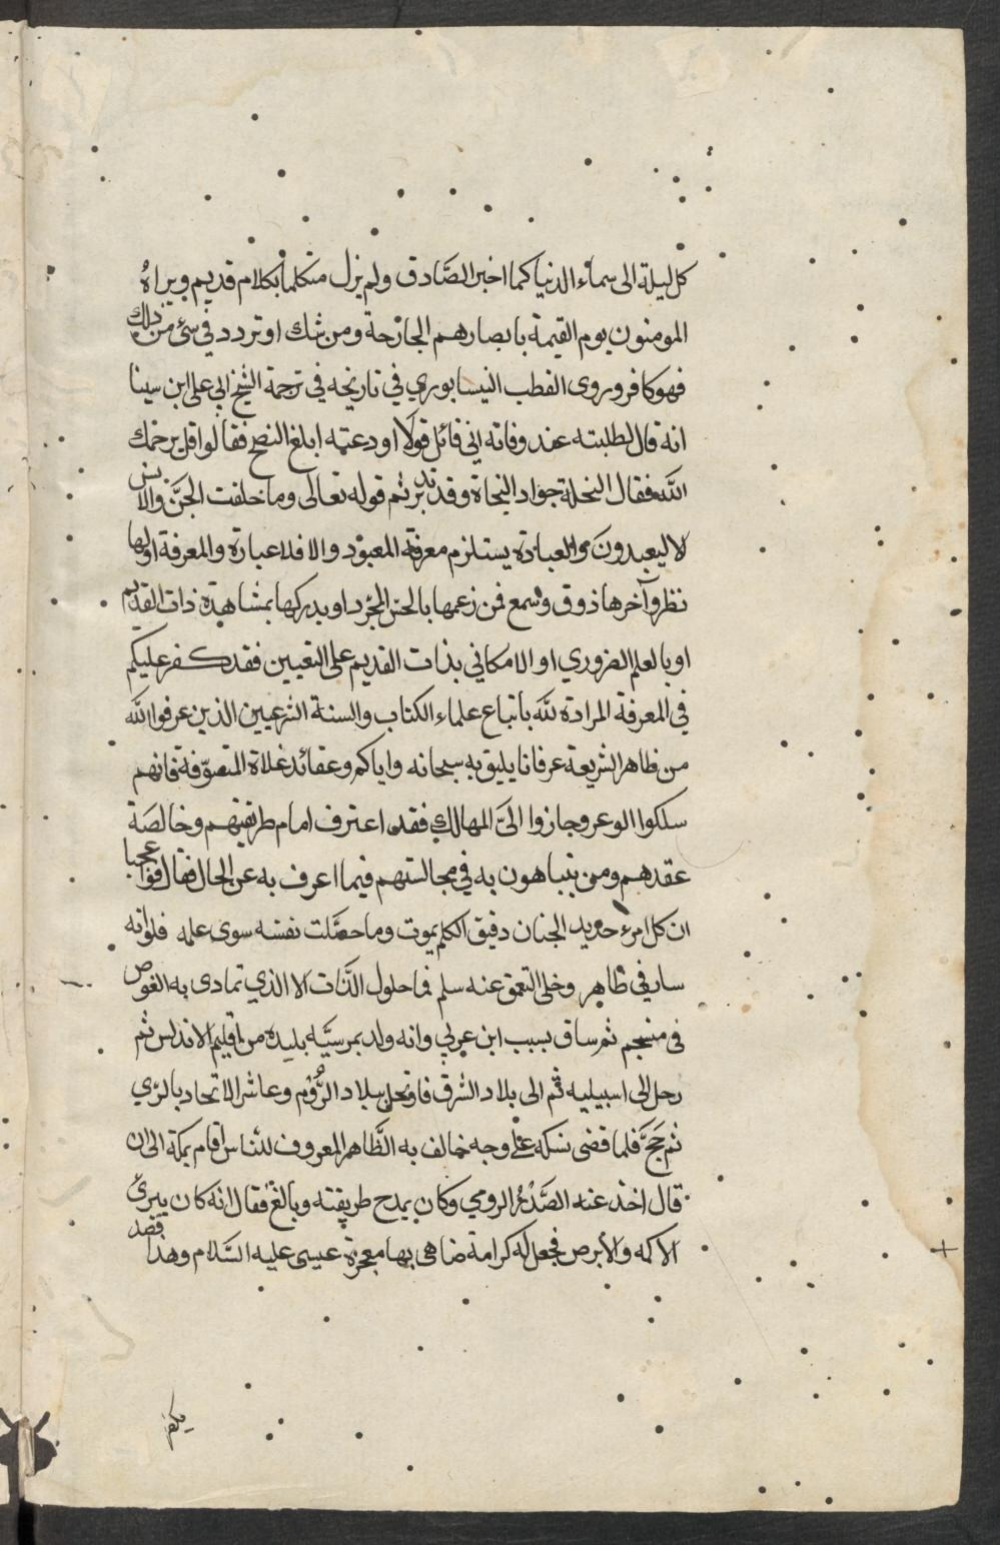 كل ليلة الى سماء الدنيا كما اخبر الصَّادق ولم يزل متكلما بكلام قديم ويراهُ
المومنون يوم القيمة بابصارهم الجارحة ومن شك او تردد في شئ من ذلك
فهو كافر وروى القطب النيسابوري في تاريخه في ترجمة الشيخ ابي على ابن سينا
انه قال لطلبته عند وفاته اني قائل قولًا اودعته ابلغ النصح فقالوا قل يرحمك
الله فقال النحلة جواد النجاة وقد تدبر ثم قوله تعالى وما خلقت الجنَّ والانس
لا ليعبدون والعبادة يستلزم معرفة المعبود والا فلا عبارة والمعرفة اولها
نظر وآخرها ذوق وسمع فمن زعمها بالحس المجرد او يدركها بمشاهدة ذات القديم
او بالعلم الضروري او الامكاني بذات القديم على التعيين فقد كفر عليكم
في المعرفة المرادة لله باتباع علماء الكتاب والسنة الشرعيين الذين عرفوا الله
من ظاهر الشريعة عرفانا يليق به سبحانه واياكم وعقائد غلاة المتصوّفة فانهم
سلكوا الوعر وجازوا الىَ المهالك فقد اعترف امام طريقتهم وخالصَة
عقدهم ومن يتباهون به في مجالستهم فيما اعرف به عن الحال فقال فوا عجبا
ان كل امرء حديد الجنان دقيق الكلم يموت وما حصَّلت نفسه سوى علمه فلوانه
سار في ظاهر وخلى التعمق عنه سلم فما حلول الذَّات الا الذي تمادى به الغوص
في منجم ثم ساق بسبب ابن عربي وانه ولد بمرسيَّه بليدة من اقليم الاندلس ثم
رحل الى اسبيليه ثم الى بلاد الشرق فاوتحل ببلاد الرُّوم وعاشر الاتحاد بالزي
ثم حَجَّ فلما قضى نسكه على وجه خالف به الظَّاهر المعروف للناس اقام بمكة الى ان
قال اخذ عنه الصَّدْر الرومي وكان يمدح طريقته وبالغ فقال انه كان يبرئ
الاكمه والابرص فجعل له كرامة ضاهى بها معجزة عيسى عليه السَّلام وهذا قصد
يكفر